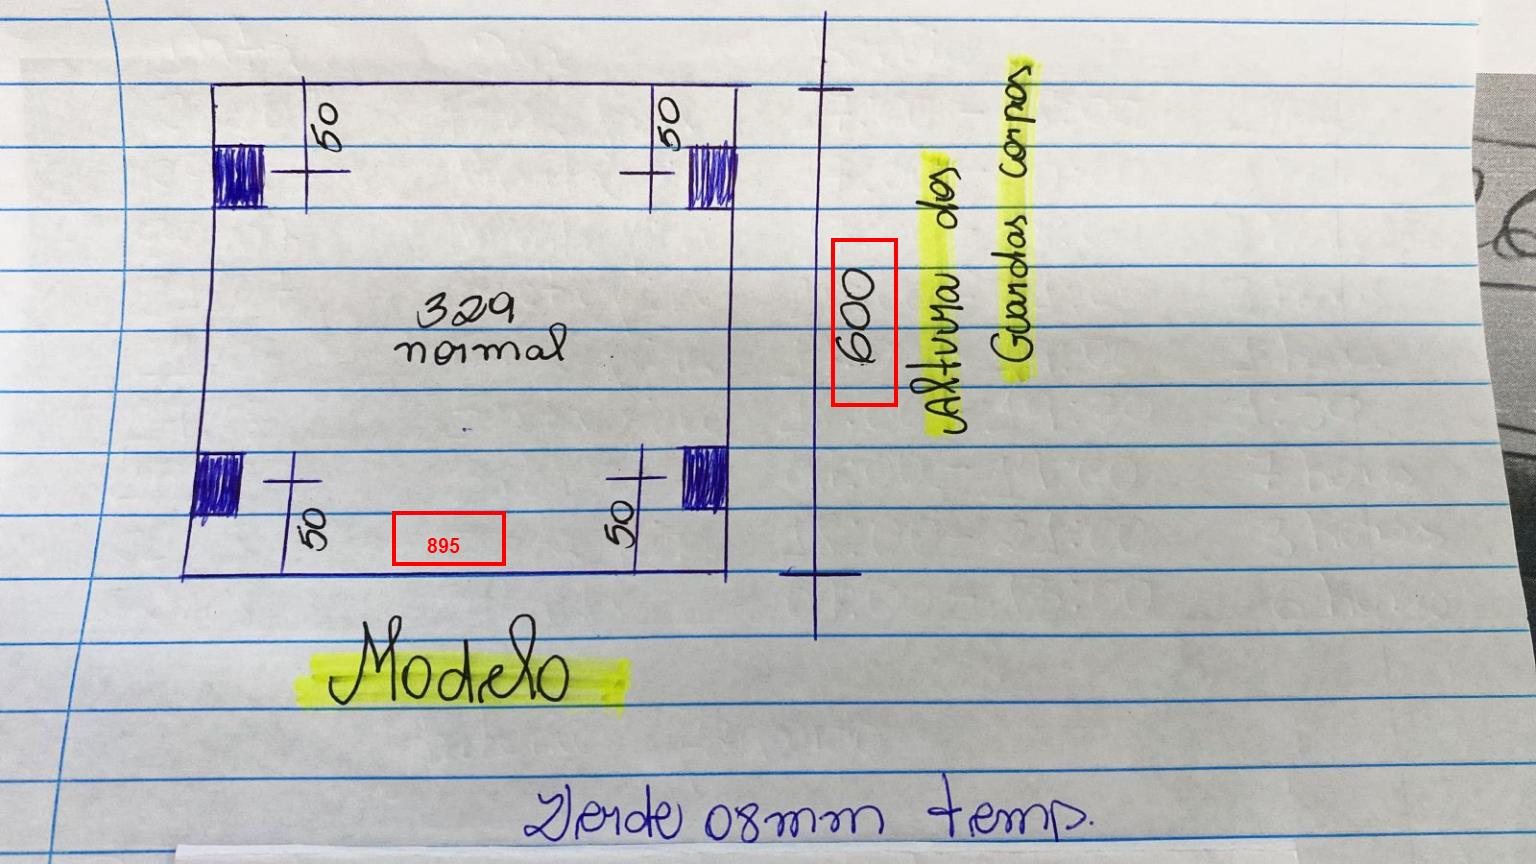 50
50
329
normal
50
895
50
600
Altura dos
Guardas corpos
Modelo
Verde 08mm temp.